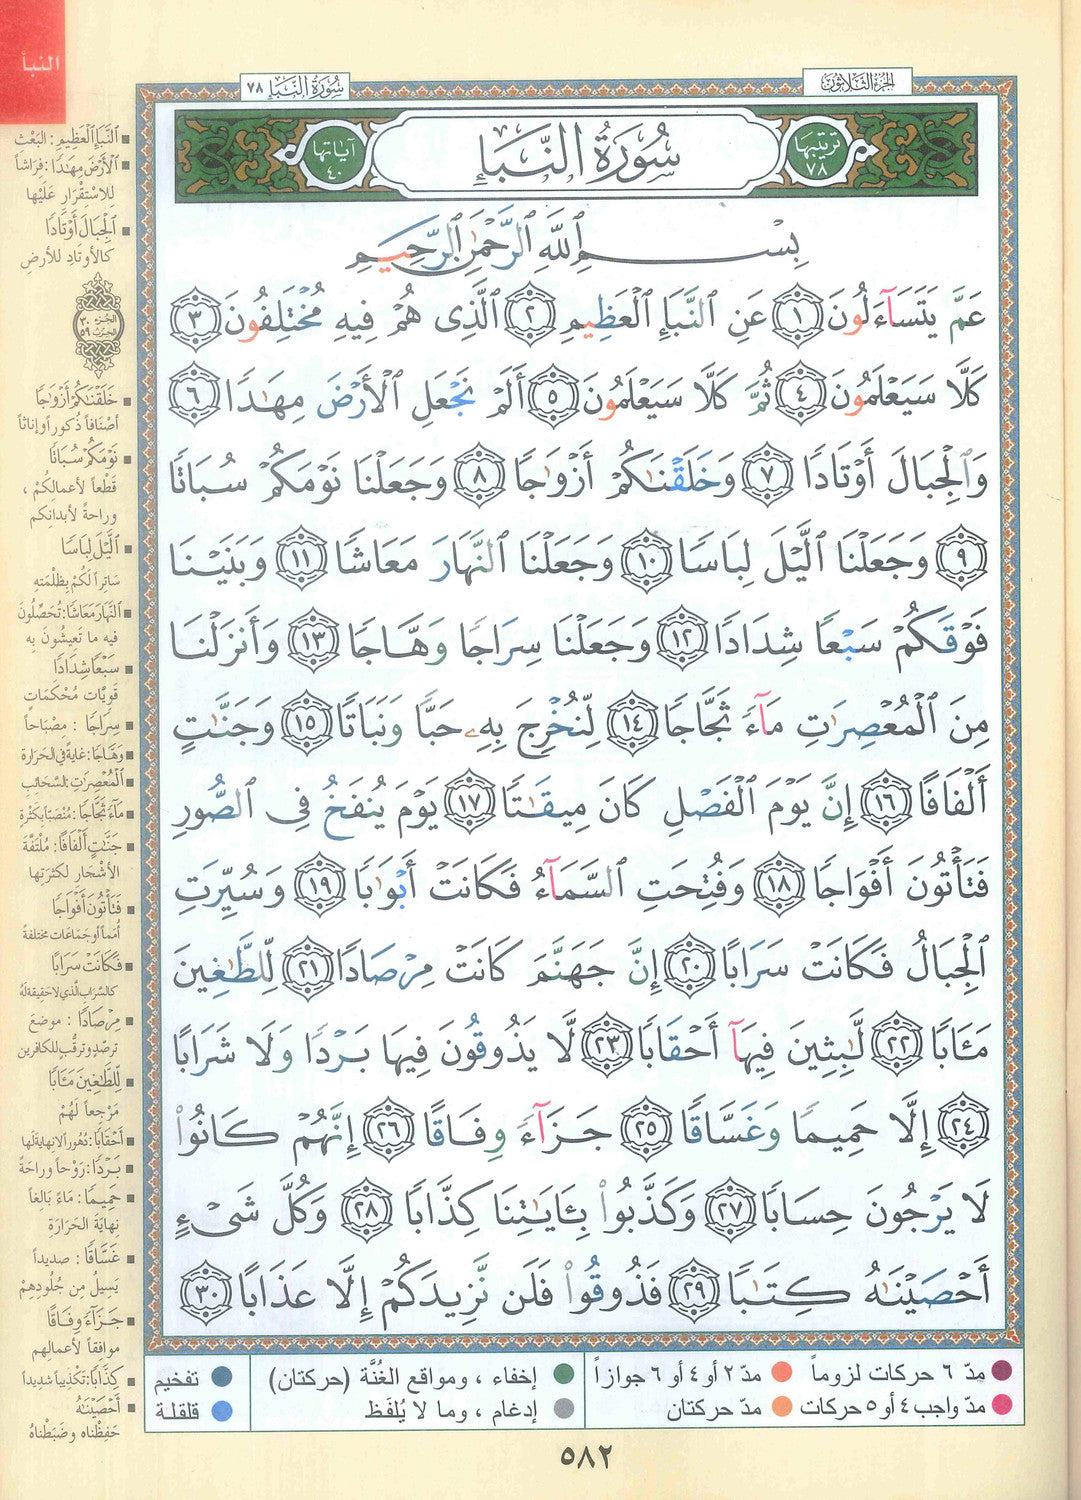 النبأ
سُورَةُ النَّبَإِ ٧٨
الجزء الثلاثون
ترتيبها ٧٨
سُورَةُ النَّبَإِ
آياتها ٤٠
بِسْمِ ٱللَّهِ ٱلرَّحْمَٰنِ ٱلرَّحِيمِ
عَمَّ يَتَسَآءَلُونَ ١ عَنِ ٱلنَّبَإِ ٱلْعَظِيمِ ٢ ٱلَّذِى هُمْ فِيهِ مُخْتَلِفُونَ ٣
كَلَّا سَيَعْلَمُونَ ٤ ثُمَّ كَلَّا سَيَعْلَمُونَ ٥ أَلَمْ نَجْعَلِ ٱلْأَرْضَ مِهَٰدًا ٦
وَٱلْجِبَالَ أَوْتَادًا ٧ وَخَلَقْنَٰكُمْ أَزْوَٰجًا ٨ وَجَعَلْنَا نَوْمَكُمْ سُبَاتًا
٩ وَجَعَلْنَا ٱلَّيْلَ لِبَاسًا ١٠ وَجَعَلْنَا ٱلنَّهَارَ مَعَاشًا ١١ وَبَنَيْنَا
فَوْقَكُمْ سَبْعًا شِدَادًا ١٢ وَجَعَلْنَا سِرَاجًا وَهَّاجًا ١٣ وَأَنزَلْنَا
مِنَ ٱلْمُعْصِرَٰتِ مَآءً ثَجَّاجًا ١٤ لِّنُخْرِجَ بِهِۦ حَبًّا وَنَبَاتًا ١٥ وَجَنَّٰتٍ
أَلْفَافًا ١٦ إِنَّ يَوْمَ ٱلْفَصْلِ كَانَ مِيقَٰتًا ١٧ يَوْمَ يُنفَخُ فِى ٱلصُّورِ
فَتَأْتُونَ أَفْوَاجًا ١٨ وَفُتِحَتِ ٱلسَّمَآءُ فَكَانَتْ أَبْوَٰبًا ١٩ وَسُيِّرَتِ
ٱلْجِبَالُ فَكَانَتْ سَرَابًا ٢٠ إِنَّ جَهَنَّمَ كَانَتْ مِرْصَادًا ٢١ لِّلطَّٰغِينَ
مَـَٔابًا ٢٢ لَّٰبِثِينَ فِيهَآ أَحْقَابًا ٢٣ لَّا يَذُوقُونَ فِيهَا بَرْدًا وَلَا شَرَابًا
٢٤ إِلَّا حَمِيمًا وَغَسَّاقًا ٢٥ جَزَآءً وِفَاقًا ٢٦ إِنَّهُمْ كَانُوا۟
لَا يَرْجُونَ حِسَابًا ٢٧ وَكَذَّبُوا۟ بِـَٔايَٰتِنَا كِذَّابًا ٢٨ وَكُلَّ شَىْءٍ
أَحْصَيْنَٰهُ كِتَٰبًا ٢٩ فَذُوقُوا۟ فَلَن نَّزِيدَكُمْ إِلَّا عَذَابًا ٣٠
ٱلنَّبَإِ ٱلْعَظِيمِ: البَعْث
ٱلْأَرْضَ مِهَٰدًا: فِرَاشاً
للاسْتِقْرَارِ عَلَيْها
ٱلْجِبَالَ أَوْتَادًا
كالأوتَادِ للأرضِ
الجزء ٣٠
الحزب ٥٩
خَلَقْنَٰكُمْ أَزْوَٰجًا
أصْنَافاً ذُكوراً وإناثاً
نَوْمَكُمْ سُبَاتًا
قَطْعاً لأعمالِكُمْ ،
وراحةً لأبدانكم
ٱلَّيْلَ لِبَاسًا
سَاتِراً لَكُمْ بِظُلْمَتِه
ٱلنَّهَارَ مَعَاشًا: تُحَصِّلُونَ
فيه ما تَعِيشُونَ بِه
سَبْعًا شِدَادًا
قَوِيَّات مُحْكَمَات
سِرَاجًا : مصْبَاحاً
وَهَّاجًا: غايةً في الحَرَارة
ٱلْمُعْصِرَٰتِ: السَّحَائب
مَآءً ثَجَّاجًا: مُنْصَبّاً بكَثْرة
جَنَّٰتٍ أَلْفَافًا: مُلْتَفَّة
الأشْجارِ لكثرَتِها
فَتَأْتُونَ أَفْوَاجًا
أُمَماً أو جَمَاعات مختلفة
فَكَانَتْ سَرَابًا
كالسَّرابِ الّذي لا حَقيقةَ لَهُ
مِرْصَادًا : موضعَ
ترصُّدٍ وترقُّبٍ للكافرين
لِّلطَّٰغِينَ مَـَٔابًا
مَرْجِعاً لَهُمْ
أَحْقَابًا: دُهُوراً لا نِهايةَ لَها
بَرْدًا: رَوْحاً وراحَةً
حَمِيمًا: مَاءً بَالِغاً
نِهايَةَ الحَرَارَةِ
غَسَّاقًا : صديداً
يَسِيلُ مِن جُلُودِهِمْ
جَزَآءً وِفَاقًا
موافِقاً لأعمالِهم
كِذَّابًا: تَكْذِيباً شديداً
أَحْصَيْنَٰهُ
حَفِظْناه وضَبَطْناهُ
مدّ ٦ حركات لزوماً
مدّ ٢ أو ٤ أو ٦ جوازاً
إخفاء ، ومواقع الغُنَّة (حركتان)
تفخيم
مدّ واجب ٤ أو ٥ حركات
مدّ حركتان
إدغام ، وما لا يُلفَظ
قلقلة
٥٨٢